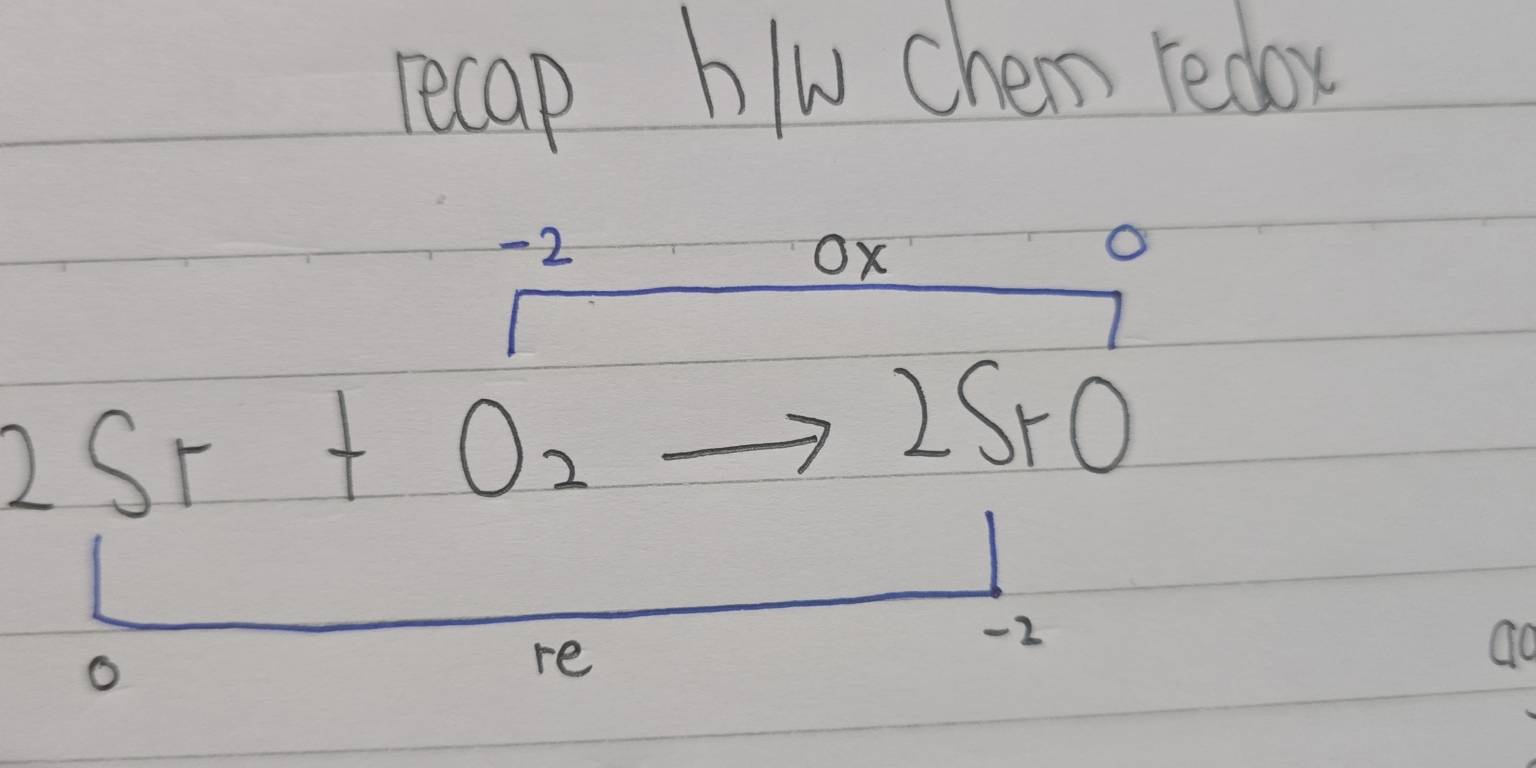 recap h/w chem redox
-2 Ox 0
2Sr + O₂ → 2SrO
0 re -2